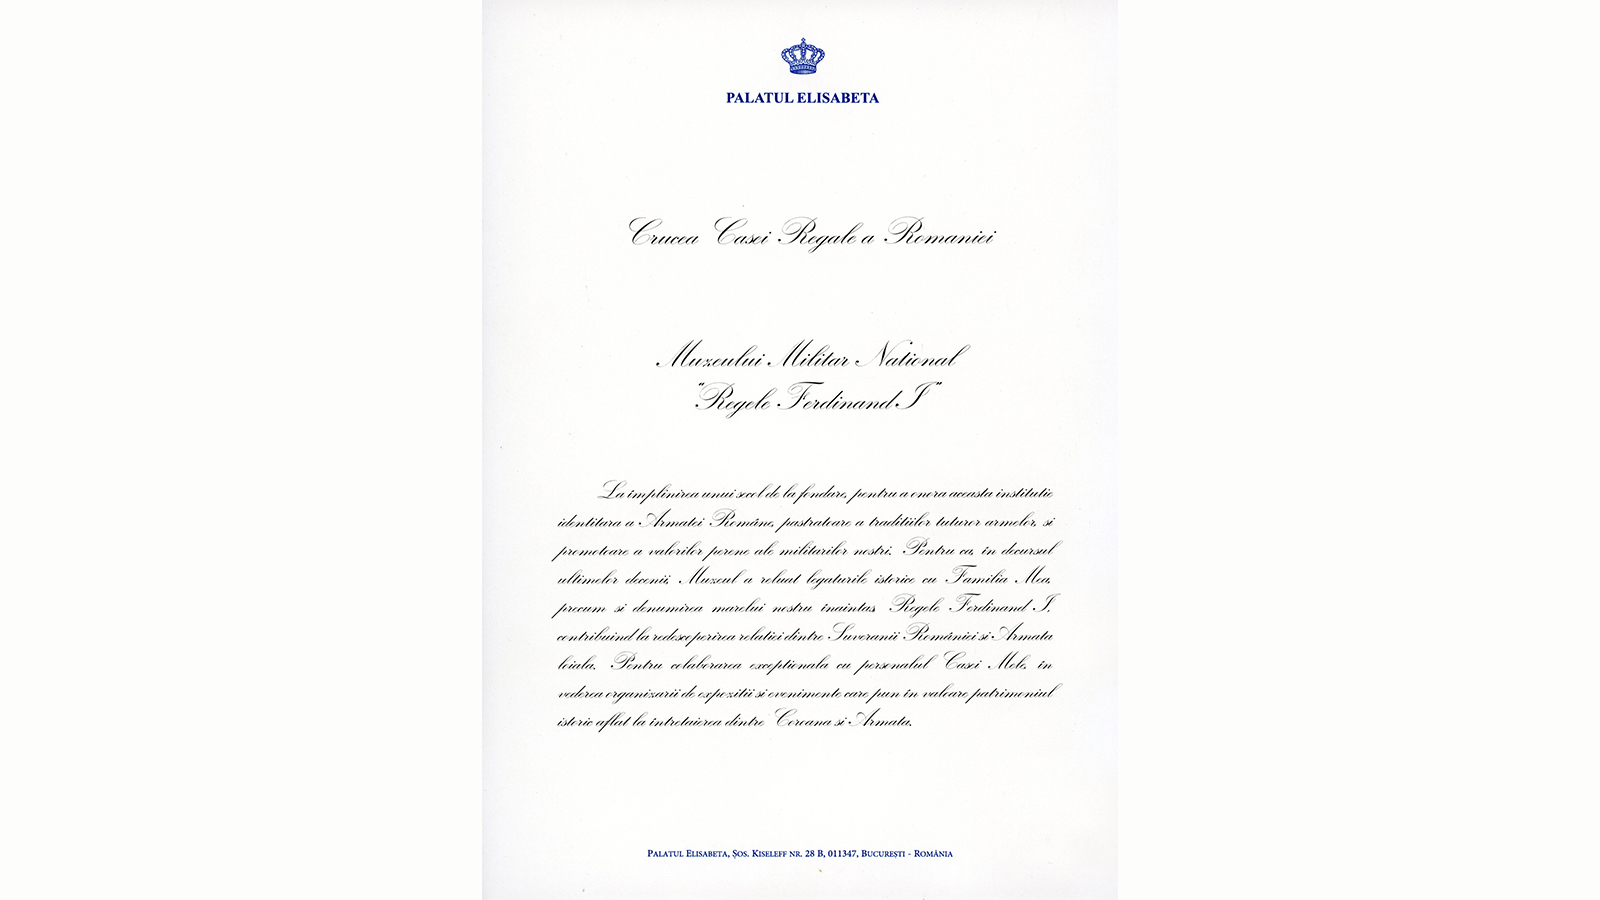 PALATUL ELISABETA
Crucea Casei Regale a Romaniei
Muzeului Militar National
"Regele Ferdinand I"
La împlinirea unui secol de la fondare, pentru a onora aceasta institutie
identitara a Armatei Române, pastratoare a traditiilor tuturor armelor, si
promotoare a valorilor perene ale militarilor nostri. Pentru ca, în decursul
ultimelor decenii, Muzeul a reluat legaturile istorice cu Familia Mea,
precum si denumirea marelui nostru înaintas, Regele Ferdinand I,
contribuind la redescoperirea relatiei dintre Suveranii României si Armata
loiala. Pentru colaborarea exceptionala cu personalul Casei Mele, în
vederea organizarii de expozitii si evenimente care pun în valoare patrimoniul
istoric aflat la întretaierea dintre Coroana si Armata.
PALATUL ELISABETA, ȘOS. KISELEFF NR. 28 B, 011347, BUCUREȘTI - ROMÂNIA